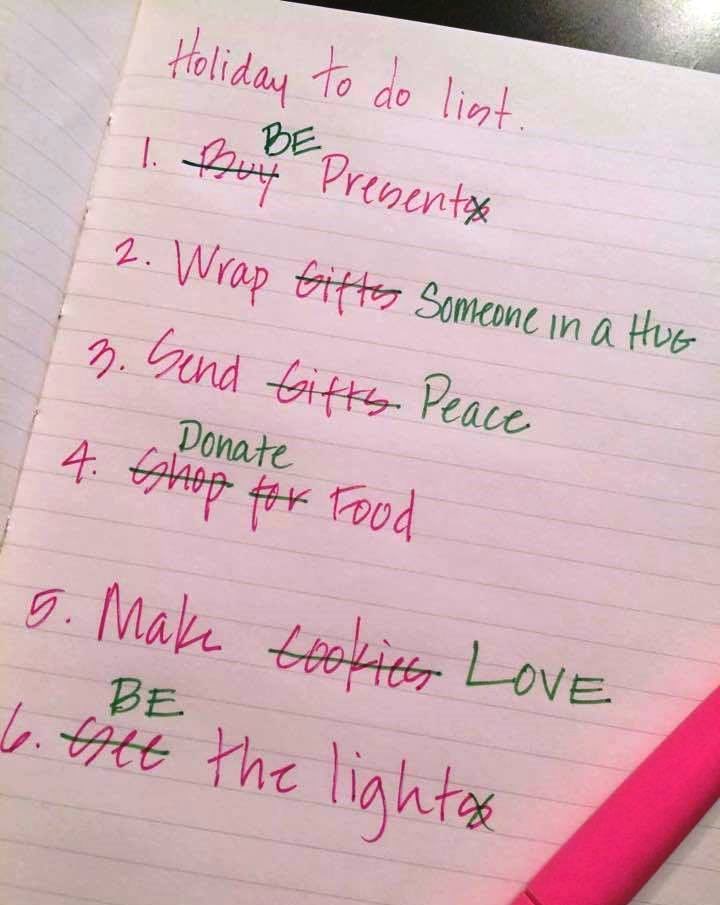 Holiday to do list.
1. Buy BE Presents
2. Wrap Gifts Someone in a Hug
3. Send Gifts Peace
4. Shop for Donate Food
5. Make Cookies LOVE
6. See BE the lights